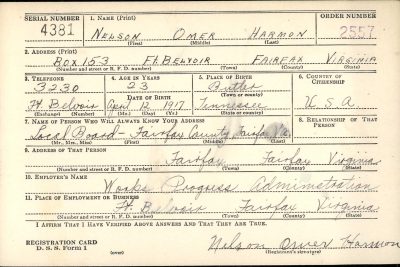 SERIAL NUMBER 1. NAME (Print) ORDER NUMBER
4381 NELSON OMER HARMON 2557
(First) (Middle) (Last)
2. ADDRESS (Print)
BOX 153 FT. BELVOIR FAIRFAX VIRGINIA
(Number and street or R. F. D. number) (Town) (County) (State)
3. TELEPHONE 4. AGE IN YEARS 5. PLACE OF BIRTH 6. COUNTRY OF CITIZENSHIP
3230 23 Butler
DATE OF BIRTH (Town or county)
Ft. Belvoir April 12, 1917 Tennessee U.S.A
(Exchange) (Number) (Mo.) (Day) (Yr.) (State or country)
7. NAME OF PERSON WHO WILL ALWAYS KNOW YOUR ADDRESS 8. RELATIONSHIP OF THAT PERSON
Local Board - Fairfax County, Fairfax Va.
(Mr., Mrs., Miss) (First) (Middle) (Last)
9. ADDRESS OF THAT PERSON
Fairfax Fairfax Virginia
(Number and street or R. F. D. number) (Town) (County) (State)
10. EMPLOYER'S NAME
Works Progress Adminstration
11. PLACE OF EMPLOYMENT OR BUSINESS
Ft. Belvoir Fairfax Virginia
(Number and street or R. F. D. number) (Town) (County) (State)
I AFFIRM THAT I HAVE VERIFIED ABOVE ANSWERS AND THAT THEY ARE TRUE.
REGISTRATION CARD Nelson Omer Harmon
D. S. S. Form 1 (over) (Registrant's signature)